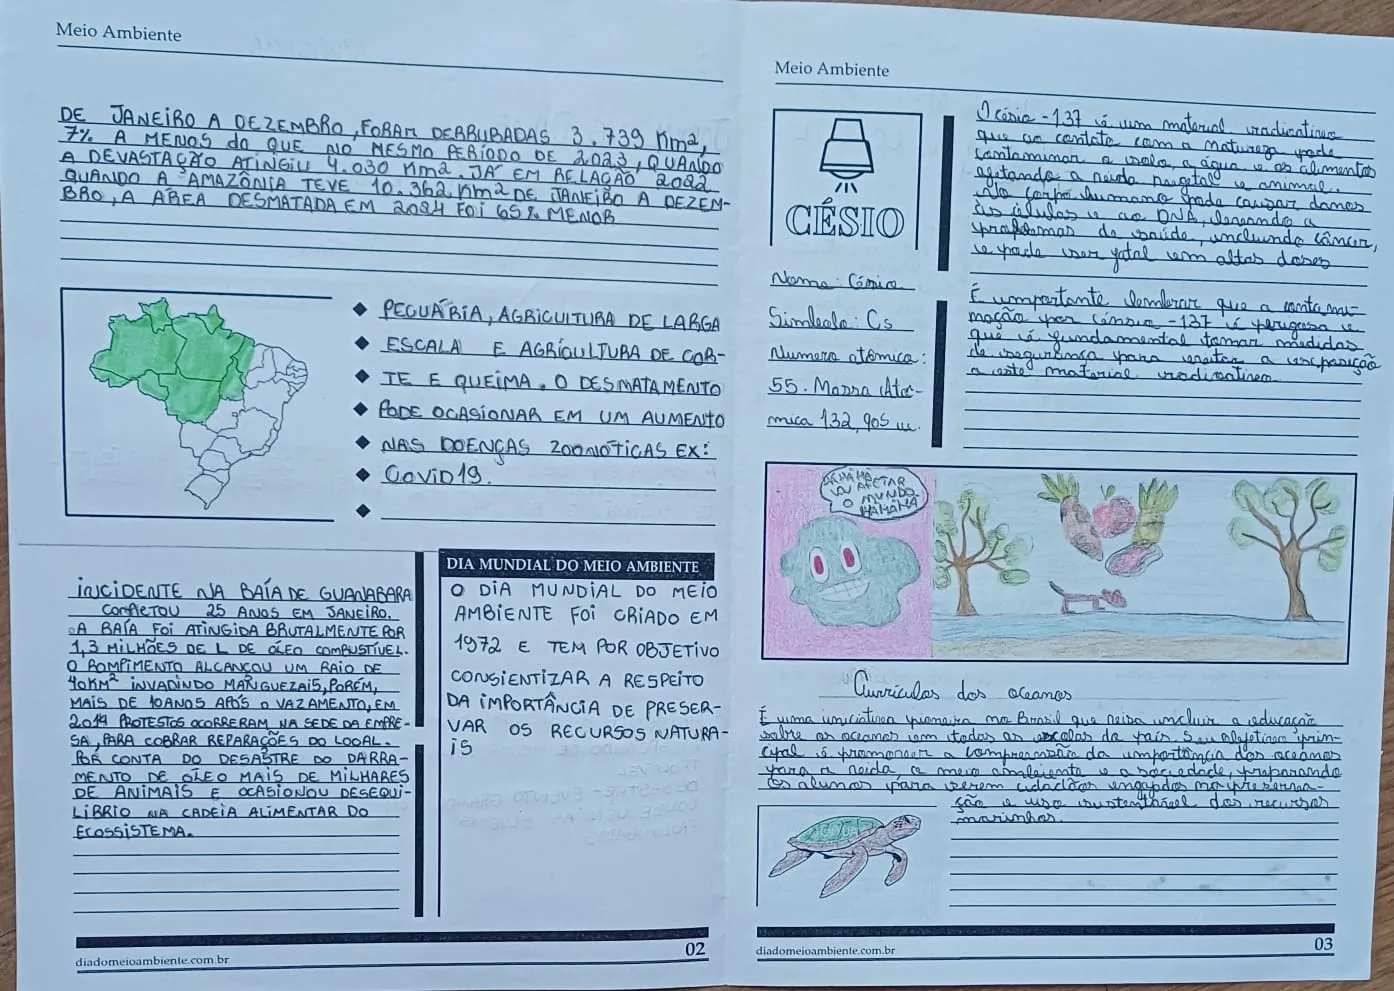 Meio Ambiente
DE JANEIRO A DEZEMBRO, FORAM DERRUBADAS 3.739 Km²,
7% A MENOS do QUE NO MESMO PERÍODO DE 2023, QUANDO
A DEVASTAÇÃO ATINGIU 4.030 Km². JÁ EM RELAÇÃO 2022
QUANDO A AMAZÔNIA TEVE 10.362 Km² DE JANEIRO A DEZEM-
BRO, A ÁREA DESMATADA EM 2024 FOI 65% MENOR
PECUÁRIA, AGRICULTURA DE LARGA
ESCALA E AGRICULTURA DE COR-
TE E QUEIMA. O DESMATAMENTO
PODE OCASIONAR EM UM AUMENTO
NAS DOENÇAS ZOONOTICAS EX:
COVID19.
INCIDENTE NA BAÍA DE GUANABARA
COMPLETOU 25 ANOS EM JANEIRO.
A BAÍA FOI ATINGIDA BRUTALMENTE POR
1,3 MILHÕES DE L DE ÓLEO COMBUSTÍVEL.
O ROMPIMENTO ALCANÇOU UM RAIO DE
40KM² INVADINDO MANGUEZAIS, PORÉM,
MAIS DE 10 ANOS APÓS O VAZAMENTO, EM
2014 PROTESTOS OCORRERAM NA SEDE DA EMPRE-
SA, PARA COBRAR REPARAÇÕES DO LOCAL.
POR CONTA DO DESASTRE DO DARRA-
MENTO DE OLEO MAIS DE MILHARES
DE ANIMAIS E OCASIONOU DESEQUI-
LIBRIO NA CADEIA ALIMENTAR DO
ECOSSISTEMA.
DIA MUNDIAL DO MEIO AMBIENTE
O DIA MUNDIAL DO MEIO
AMBIENTE FOI CRIADO EM
1972 E TEM POR OBJETIVO
CONSIENTIZAR A RESPEITO
DA IMPORTÂNCIA DE PRESER-
VAR OS RECURSOS NATURA-
IS
diadomeioambiente.com.br
02
Meio Ambiente
CÉSIO
O césio-137 é um material radioativo
que ao contato com a natureza pode
contaminar o solo, a água e os alimentos
afetando a vida vegetal e animal.
No corpo humano pode causar danos
às células e ao DNA, levando a
problemas de saúde, incluindo câncer,
e pode ser fatal em altas doses
Nome: Césio
Simbolo: Cs
Numero atômico:
55. Massa Atô-
mica 132,905 u.
É importante lembrar que a contami-
nação por Césio-137 é perigosa e
que é fundamental tomar medidas
de segurança para evitar a exposição
a este material radioativo
HAHAHA
VOU AFETAR
O MUNDO
HAHAHA
Currículos dos oceanos
É uma iniciativa pioneira no Brasil que visa incluir a educação
sobre os oceanos em todas as escolas do país. Seu objetivo prin-
cipal é promover a compreensão da importância dos oceanos
para a vida, o meio ambiente e a sociedade, preparando
os alunos para serem cidadãos engajados na preserva-
ção e uso sustentável dos recursos
marinhos.
diadomeioambiente.com.br
03